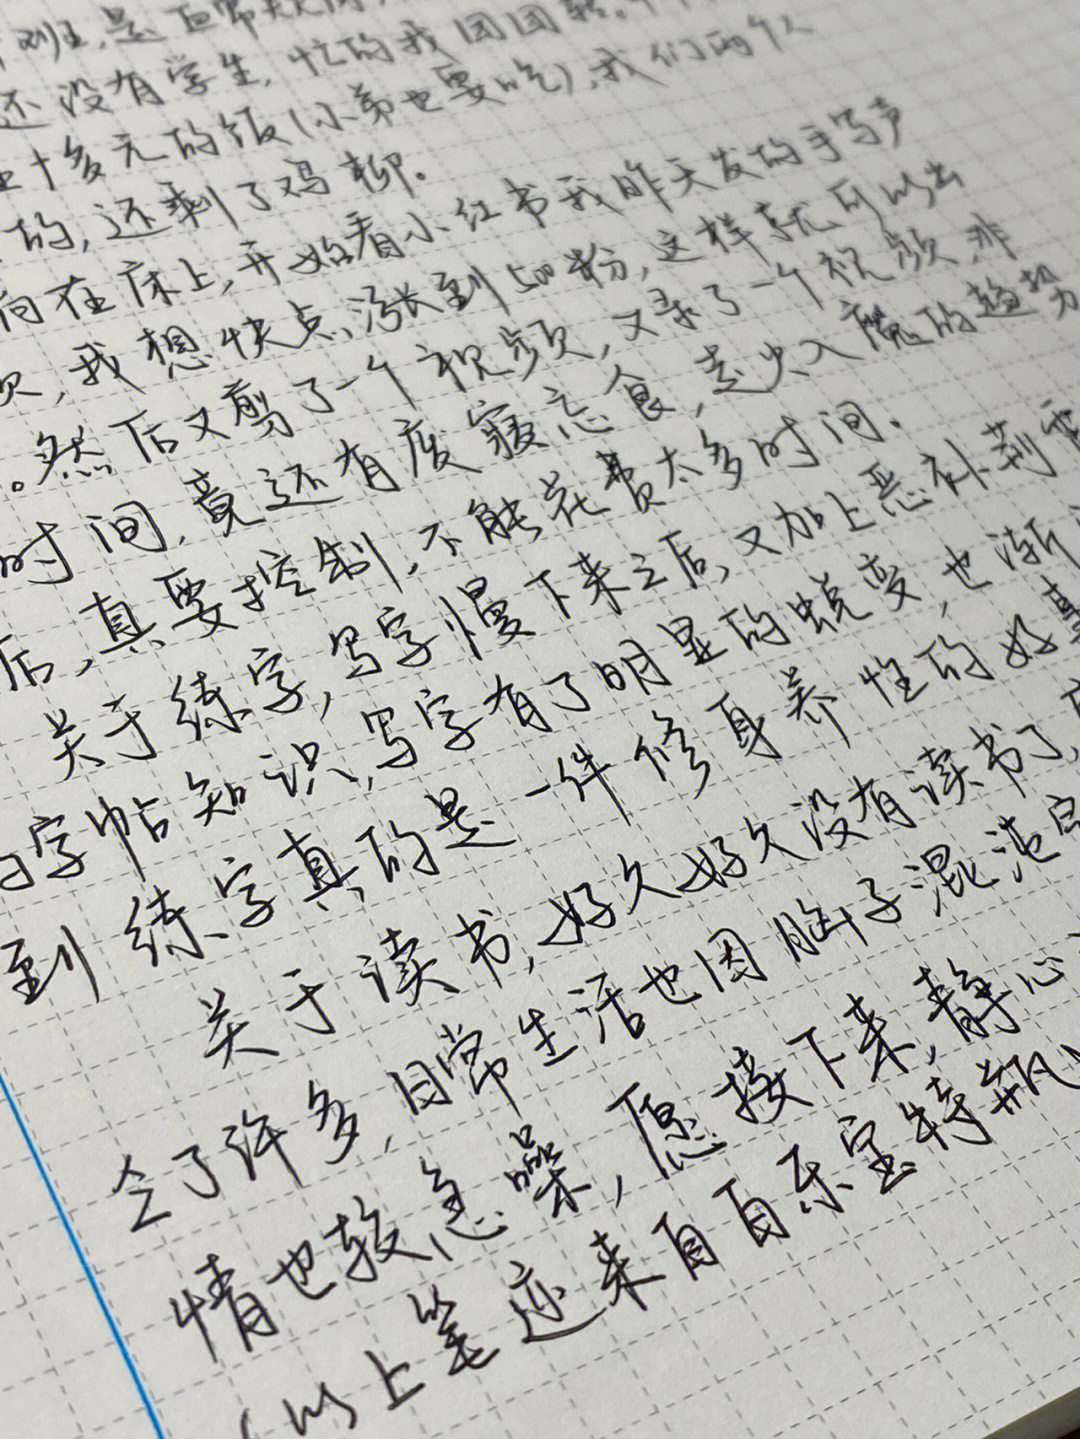 还没有学生,忙的我团团转。
十多元的饭(小弟也要吃),我们两个人
的,还剩了鸡柳。
在床上,开始看小红书我昨天发的手写声
,我想快点涨到500粉,这样就可以去
。然后又剪了一个视频,又录了一个视频,非
时间,竟还有废寝忘食,走火入魔的趋势
后,真要控制,不能花费太多时间.
关于练字,写字慢下来之后,又加上恶补荆霄
字帖知识,写字有了明显的蜕变,也渐
到练字真的是一件修身养性的好事
关于读书,好久好久没有读书了,
会了许多,日常生活也因脑子混沌
情也较急噪,愿接下来,静心
(以上笔迹来自百乐宝特瓶